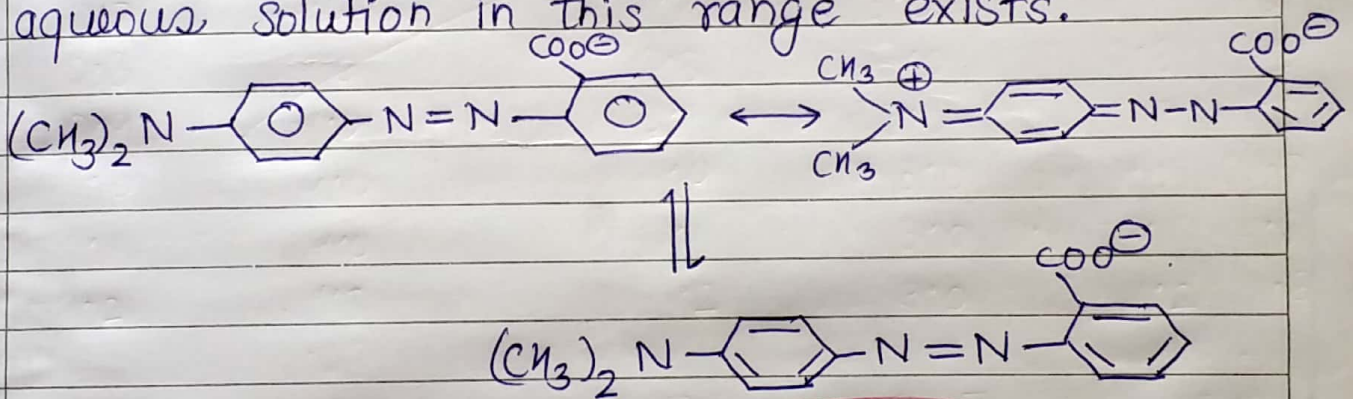 aqueous solution in this range exists.
COO⊖
CH₃ ⊕
COO⊖
(CH₃)₂ N- -N=N- ⟷ N= =N-N-
CH₃
⇌
COO⊖
(CH₃)₂ N- -N=N-